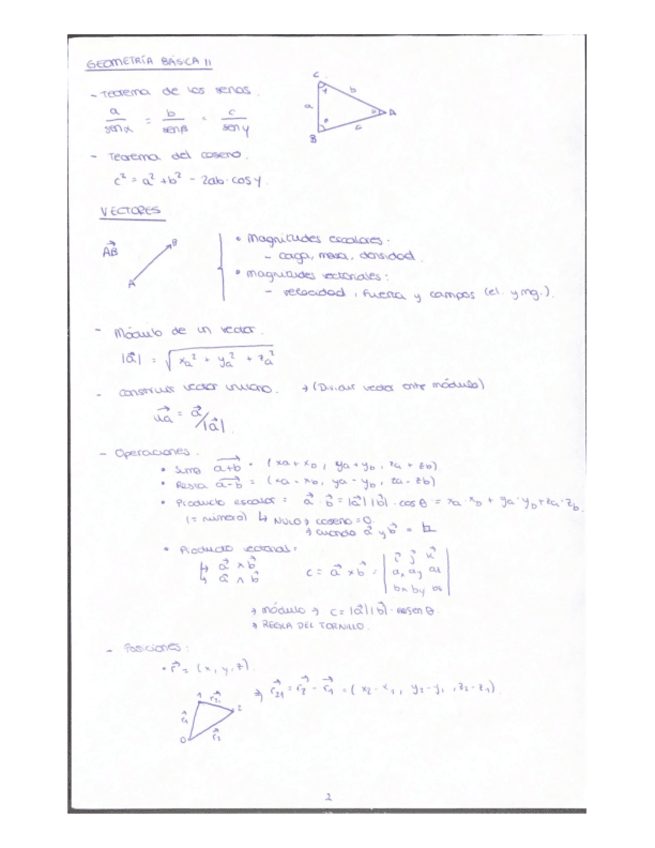 GEOMETRÍA BÁSICA II
- Teorema de los senos.
a/senα = b/senβ = c/senγ
C
b
a
A
B
c
- Teorema del coseno.
c² = a² + b² - 2ab·cosγ.
VECTORES
AB
B
A
• Magnitudes escalares:
- carga, masa, densidad.
• Magnitudes vectoriales:
- velocidad, fuerza y campos (el. y mg.).
- Módulo de un vector.
|a⃗| = √(xa² + ya² + za²)
- Construir vector unitario. → (Dividir vector entre módulo)
u⃗a = a⃗/|a⃗|.
- Operaciones.
• Suma a+b = (xa+xb, ya+yb, za+zb)
• Resta a-b = (xa-xb, ya-yb, za-zb)
• Producto escalar = a⃗·b⃗ = |a⃗||b⃗|·cosθ = xa·xb + ya·yb + za·zb.
(= número) ↳ NULO → coseno = 0.
→ cuando a⃗ y b⃗ =
• Producto vectorial =
↳ a⃗ × b⃗
↳ a⃗ ∧ b⃗
c = a⃗ × b⃗ = | i⃗ j⃗ k⃗
ax ay az
bx by bz |
→ módulo → c = |a⃗||b⃗|·senθ.
→ REGLA DEL TORNILLO.
- Posiciones:
• r⃗ = (x, y, z).
→ r⃗21 = r⃗2 - r⃗1 = (x2-x1, y2-y1, z2-z1).
1
r⃗21
2
r⃗1
0
r⃗2
2